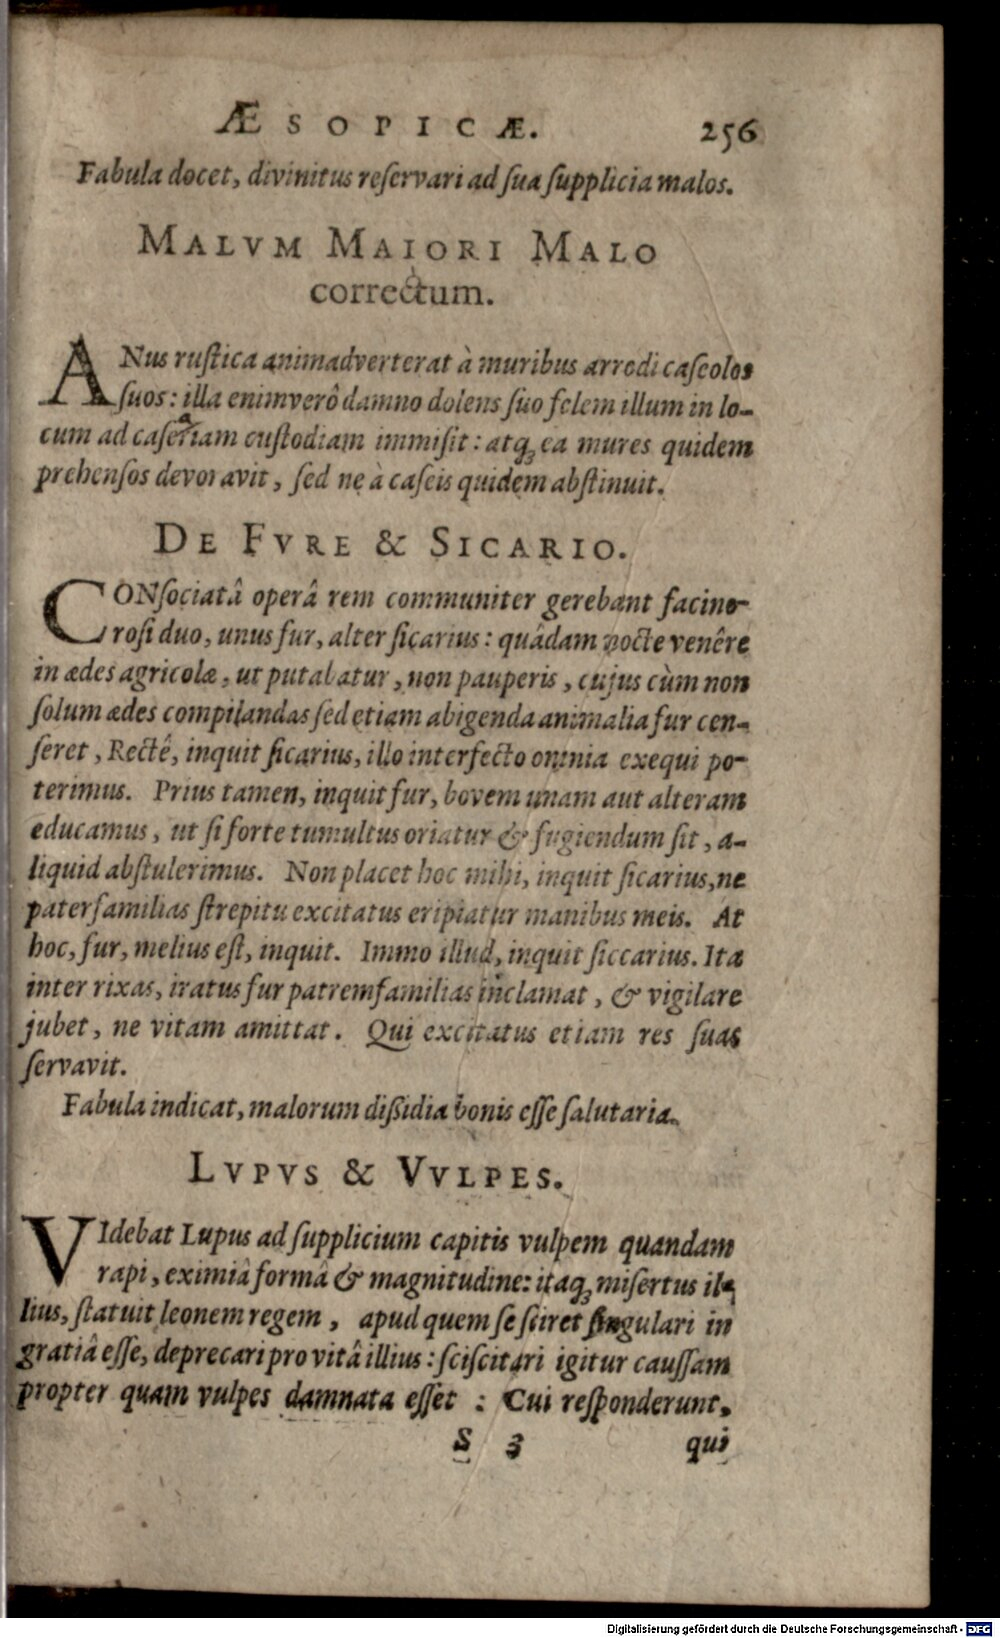 ÆSOPICÆ. 256
Fabula docet, divinitus reſervari ad ſua ſupplicia malos.
MALVM MAIORI MALO
correctum.
ANus ruſtica animadverterat à muribus arrodi caſeolos
ſuos: illa enimverô damno dolens ſuo felem illum in lo-
cum ad caſeariam cuſtodiam immiſit: atq; ea mures quidem
prehenſos devoravit, ſed ne à caſeis quidem abſtinuit.
DE FVRE & SICARIO.
CONſociatâ operâ rem communiter gerebant facino-
roſi duo, unus fur, alter ſicarius: quâdam nocte venêre
in ædes agricolæ, ut putabatur, non pauperis, cujus cùm non
ſolum ædes compilandas ſed etiam abigenda animalia fur cen-
ſeret, Rectê, inquit ſicarius, illo interfecto omnia exequi po-
terimus. Prius tamen, inquit fur, bovem unam aut alteram
educamus, ut ſi forte tumultus oriatur & fugiendum ſit, a-
liquid abſtulerimus. Non placet hoc mihi, inquit ſicarius, ne
paterfamilias ſtrepitu excitatus eripiatur manibus meis. At
hoc, fur, melius eſt, inquit. Immo illud, inquit ſiccarius. Ita
inter rixas, iratus fur patremfamilias inclamat, & vigilare
jubet, ne vitam amittat. Qui excitatus etiam res ſuas
ſervavit.
Fabula indicat, malorum diſsidia bonis eſſe ſalutaria.
LVPVS & VVLPES.
VIdebat Lupus ad ſupplicium capitis vulpem quandam
rapi, eximiâ formâ & magnitudine: itaq; miſertus il-
lius, ſtatuit leonem regem, apud quem ſe ſciret ſingulari in
gratiâ eſſe, deprecari pro vitâ illius: ſciſcitari igitur cauſſam
propter quam vulpes damnata eſſet : Cui reſponderunt,
S 3 qui
Digitalisierung gefördert durch die Deutsche Forschungsgemeinschaft - DFG